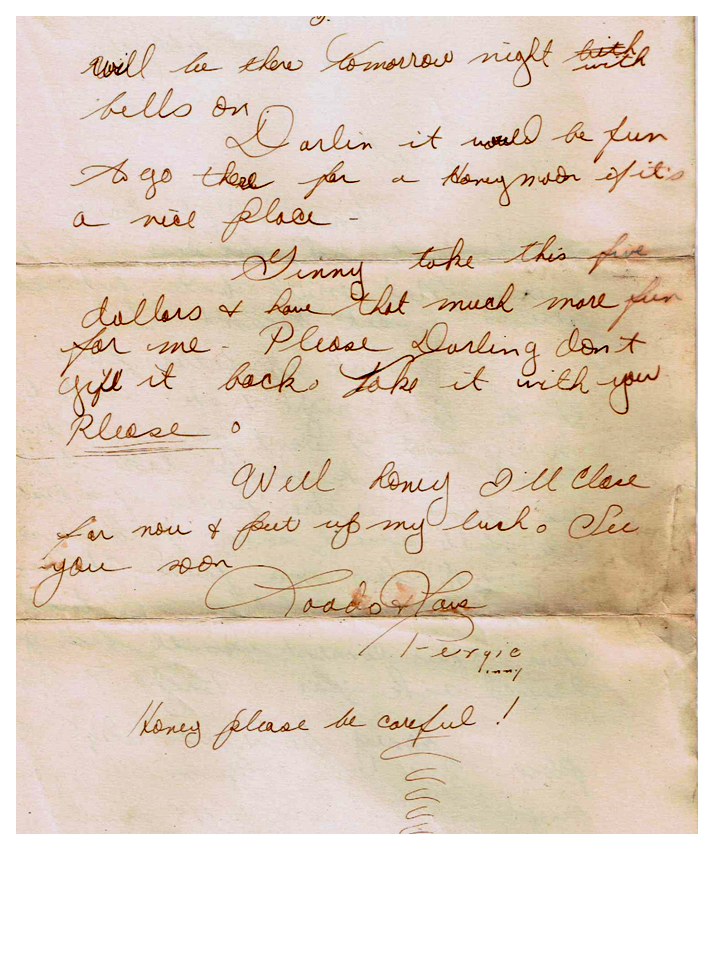 will be there tomorrow night with
bells on
Darlin it would be fun
to go there for a Honeymoon if it's
a nice place -
Ginny take this five
dollars & have that much more fun
for me - Please Darling don't
give it back. Take it with you
Please.
Well honey I'll close
for now & put up my lush. See
you soon
Loads of Love
Honey please be careful!